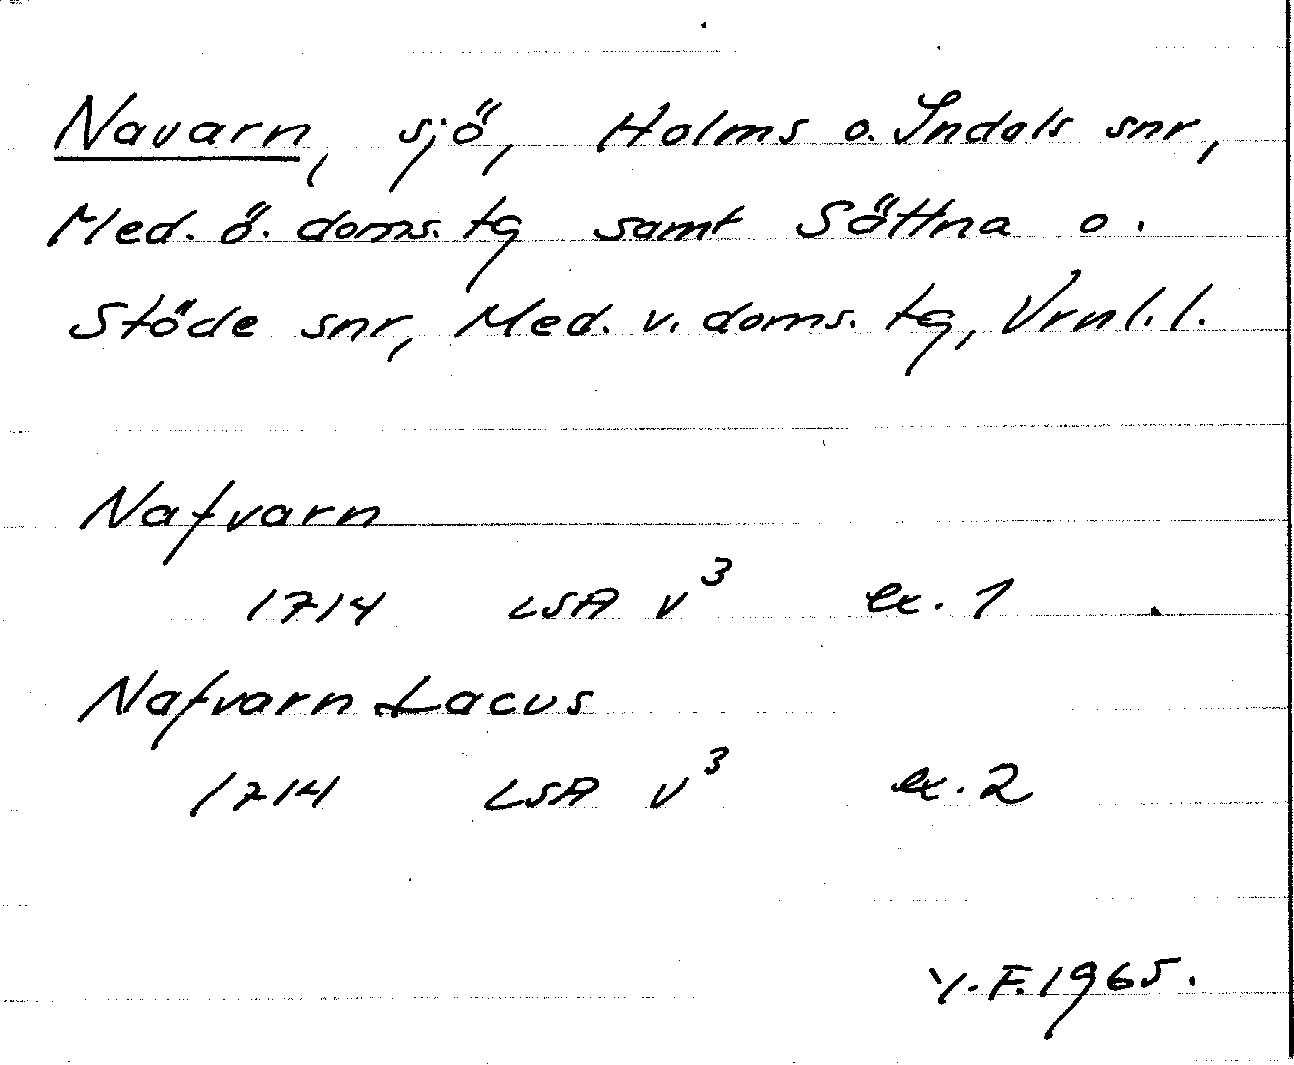 Navarn, sjö, Holms o. Indals snr,
Med. ö. doms. tg samt Sättna o.
Stöde snr, Med. v. doms. tg, Vrnl. l.
Nafvarn
1714 LSA v³ ex. 1
Nafvarn Lacus
1714 LSA v³ ex. 2
Y. F. 1965.